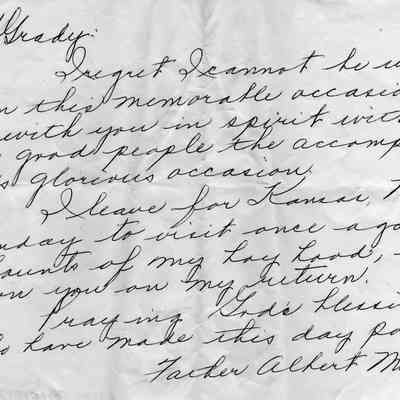 Grady:
I regret I cannot be w
on this memorable occasio
with you in spirit with
good people the accomp
s glorious occasion.
I leave for Kansas,
nday to visit once aga
haunts of my boy hood,
on you on my return.
Praying God's blessi
o have made this day po
Father Albert M